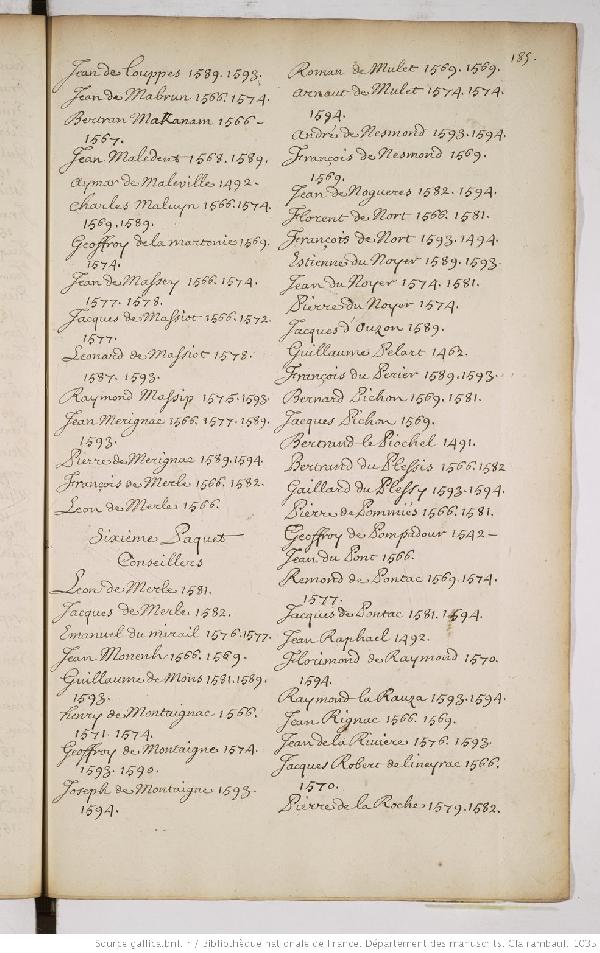 185.
Jean de Louppes 1589. 1593.
Jean de Mabrun 1566. 1574.
Bertran Makanam 1566 -
1567.
Jean Maledent 1568. 1589.
Aymar de Maleville 1492.
Charles Malvyn 1566. 1574.
1569. 1589.
Geoffroy de la martonie 1569.
1574.
Jean de Massey 1566. 1574.
1577. 1578.
Jacques de Massiot 1566. 1572.
1577.
Leonard de Massiot 1578.
1587. 1593.
Raymond Massip 1575. 1593
Jean Merignac 1566. 1577. 1589.
1593.
Pierre de Merignac 1589. 1594.
François de Merle 1566. 1582.
Leon de Merle 1566.
Sixiéme Paquet
Conseillers
Leon de Merle 1581.
Jacques de Merle 1582.
Emanuel du mirail 1576. 1577.
Jean Monenh 1566. 1569.
Guillaume de Mons 1581. 1589.
1593.
henry de Montaignac 1566.
1571. 1574.
Geoffroy de Montaigne 1574.
1593. 1590.
Joseph de Montaigne 1593.
1594.
Roman de Mulet 1569. 1569.
Arnaut de Mulet 1574. 1574.
1594.
André de Nesmond 1593. 1594.
François de Nesmond 1569.
1569.
Jean de Nogueres 1582. 1594.
Florent de Nort 1566. 1581.
François de Nort 1593. 1494.
Estienne du Noyer 1589. 1593.
Jean du Noyer 1574. 1581.
Pierre du Noyer 1574.
Jacques d'Ouzon 1589.
Guillaume Pelart 1462.
François du Perier 1589. 1593.
Bernard Pichon 1569. 1581.
Jacques Pichon 1569.
Bertrand le Piochel 1491.
Bertrand du Plessis 1566. 1582
Gaillard du Plessy 1593. 1594.
Pierre de Pommiés 1566. 1581.
Geoffroy de Pompadour 1542 -
Jean du Pont 1566.
Remond de Pontac 1569. 1574.
1577.
Jacques de Pontac 1581. 1594.
Jean Raphael 1492.
Florimond de Raymond 1570.
1594.
Raymond la Rauza 1593. 1594.
Jean Rignac 1566. 1569.
Jean de la Riviere 1576. 1593.
Jacques Robert de lineyrac 1566.
1570.
Pierre de la Roche 1579. 1582.
Source gallica.bnf.fr / Bibliothèque nationale de France. Département des manuscrits. Clairambault 1035